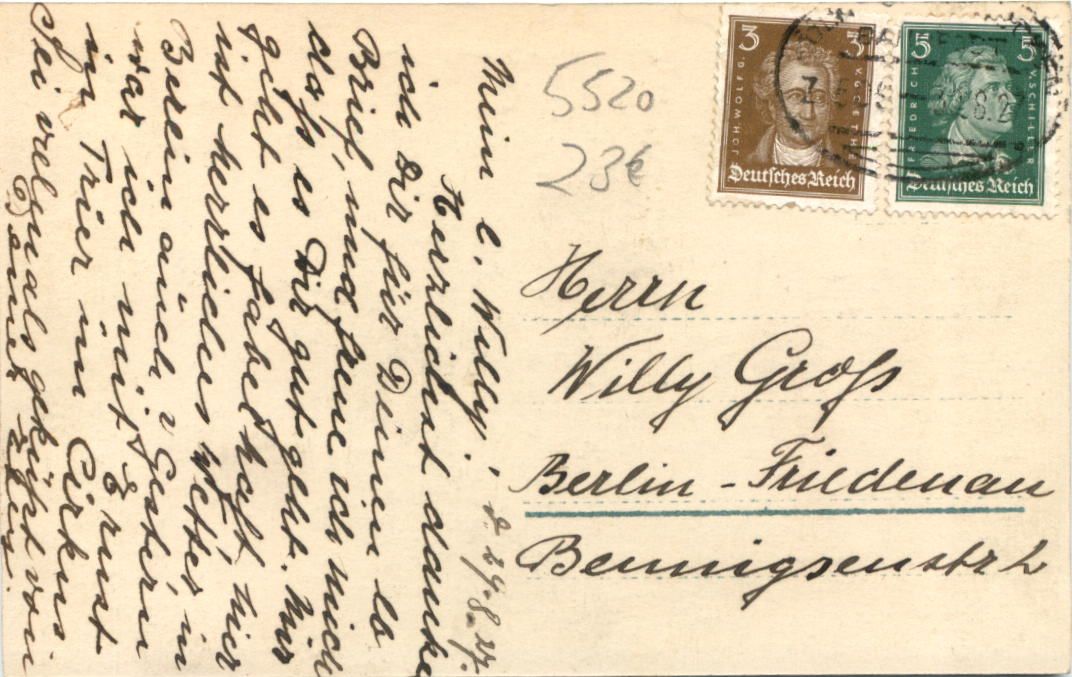 Mein l. Willy! d. 24.8.27.
Herzlichst danke
ich Dir für Deinen lb
Brief, und freue ich mich
dass es Dir gut geht. Mir
geht es fabelhaft, hier
ist herrliches Wetter, in
Berlin auch? Gestern
war ich mit Ernst
in Trier im Cirkus
Sei vielmals geküsst von
Deiner
5520
23€
3 3
JOH. WOLFG. V. GOETHE
Deutsches Reich
5 5
FRIEDRICH V. SCHILLER
Deutsches Reich
Herrn
Willy Groß
Berlin-Friedenau
Bennigsenstr 2